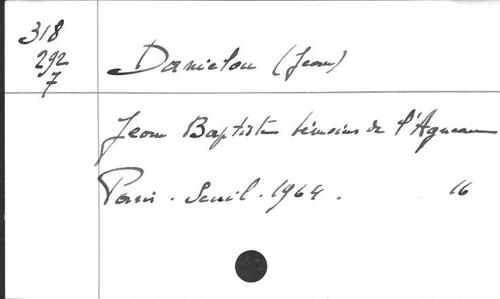 318
292
7
Danielou (Jean)
Jean Baptiste témoin de l'Agneau
Paris. Seuil. 1964. 16